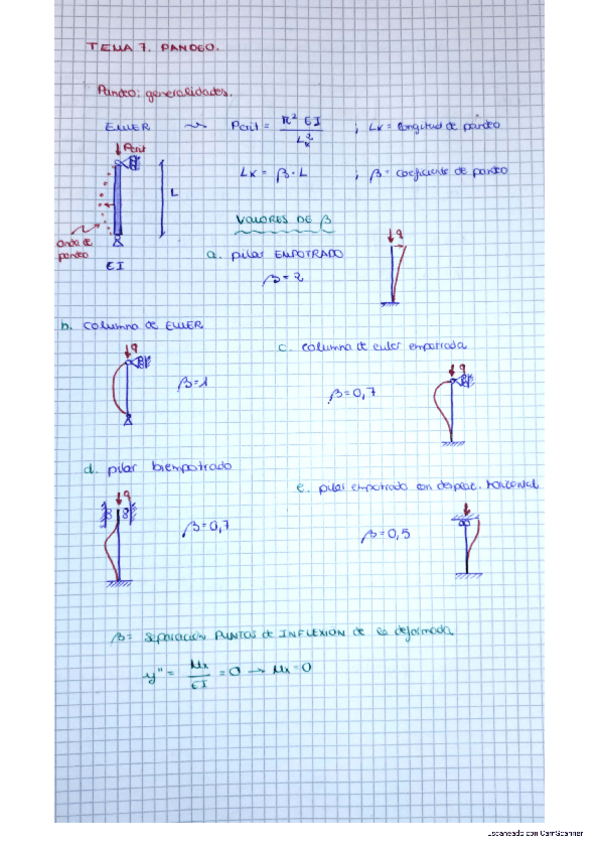 TEMA 7. PANDEO.
Pandeo: generalidades.
EULER → Pcrit = π² EI / Lk² ; Lk = longitud de pandeo
Pcrit
Lk = β · L ; β = coeficiente de pandeo
L
VALORES DE β
Onda de pandeo
EI
a. pilar EMPOTRADO
β = 2
q
b. columna de EULER
q
β = 1
c. columna de euler empotrada
q
β = 0,7
d. pilar biempotrado
q
β = 0,7
e. pilar empotrado con desplac. Horizontal
β = 0,5
β = separación PUNTOS de INFLEXION de la deformada
y'' = Mx / EI = 0 → Mx = 0
Escaneado con CamScanner